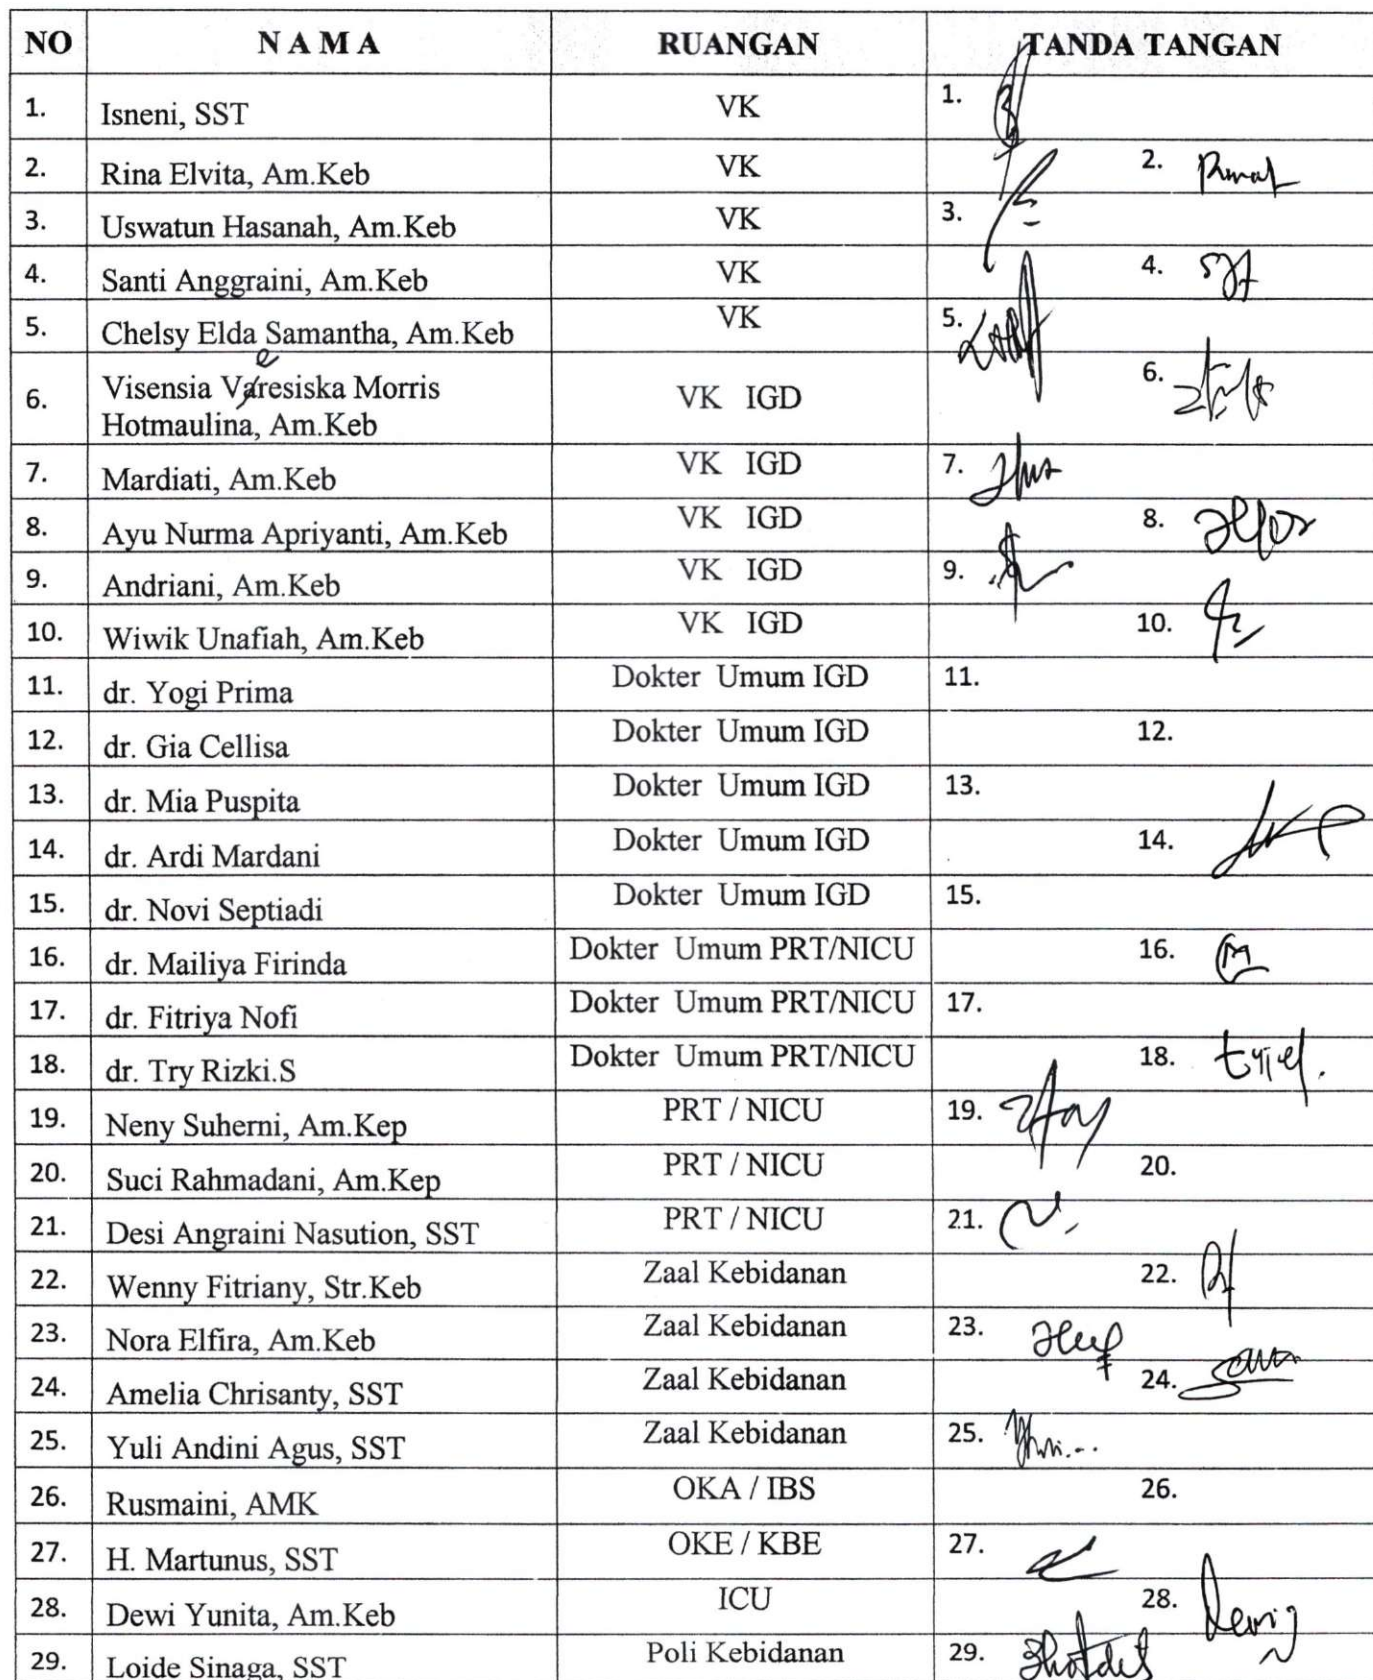 NO N A M A RUANGAN TANDA TANGAN
1. Isneni, SST VK 1.
2. Rina Elvita, Am.Keb VK 2.
3. Uswatun Hasanah, Am.Keb VK 3.
4. Santi Anggraini, Am.Keb VK 4.
5. Chelsy Elda Samantha, Am.Keb VK 5.
e
Visensia Varesiska Morris
6. Hotmaulina, Am.Keb VK IGD 6.
7. Mardiati, Am.Keb VK IGD 7.
8. Ayu Nurma Apriyanti, Am.Keb VK IGD 8.
9. Andriani, Am.Keb VK IGD 9.
10. Wiwik Unafiah, Am.Keb VK IGD 10.
11. dr. Yogi Prima Dokter Umum IGD 11.
12. dr. Gia Cellisa Dokter Umum IGD 12.
13. dr. Mia Puspita Dokter Umum IGD 13.
14. dr. Ardi Mardani Dokter Umum IGD 14.
15. dr. Novi Septiadi Dokter Umum IGD 15.
16. dr. Mailiya Firinda Dokter Umum PRT/NICU 16.
17. dr. Fitriya Nofi Dokter Umum PRT/NICU 17.
18. dr. Try Rizki.S Dokter Umum PRT/NICU 18.
19. Neny Suherni, Am.Kep PRT / NICU 19.
20. Suci Rahmadani, Am.Kep PRT / NICU 20.
21. Desi Angraini Nasution, SST PRT / NICU 21.
22. Wenny Fitriany, Str.Keb Zaal Kebidanan 22.
23. Nora Elfira, Am.Keb Zaal Kebidanan 23.
24. Amelia Chrisanty, SST Zaal Kebidanan 24.
25. Yuli Andini Agus, SST Zaal Kebidanan 25.
26. Rusmaini, AMK OKA / IBS 26.
27. H. Martunus, SST OKE / KBE 27.
28. Dewi Yunita, Am.Keb ICU 28.
29. Loide Sinaga, SST Poli Kebidanan 29.